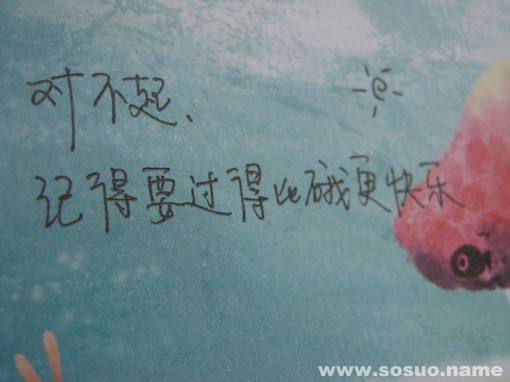 对不起、
记得要过得比硪更快乐
www.sosuo.name